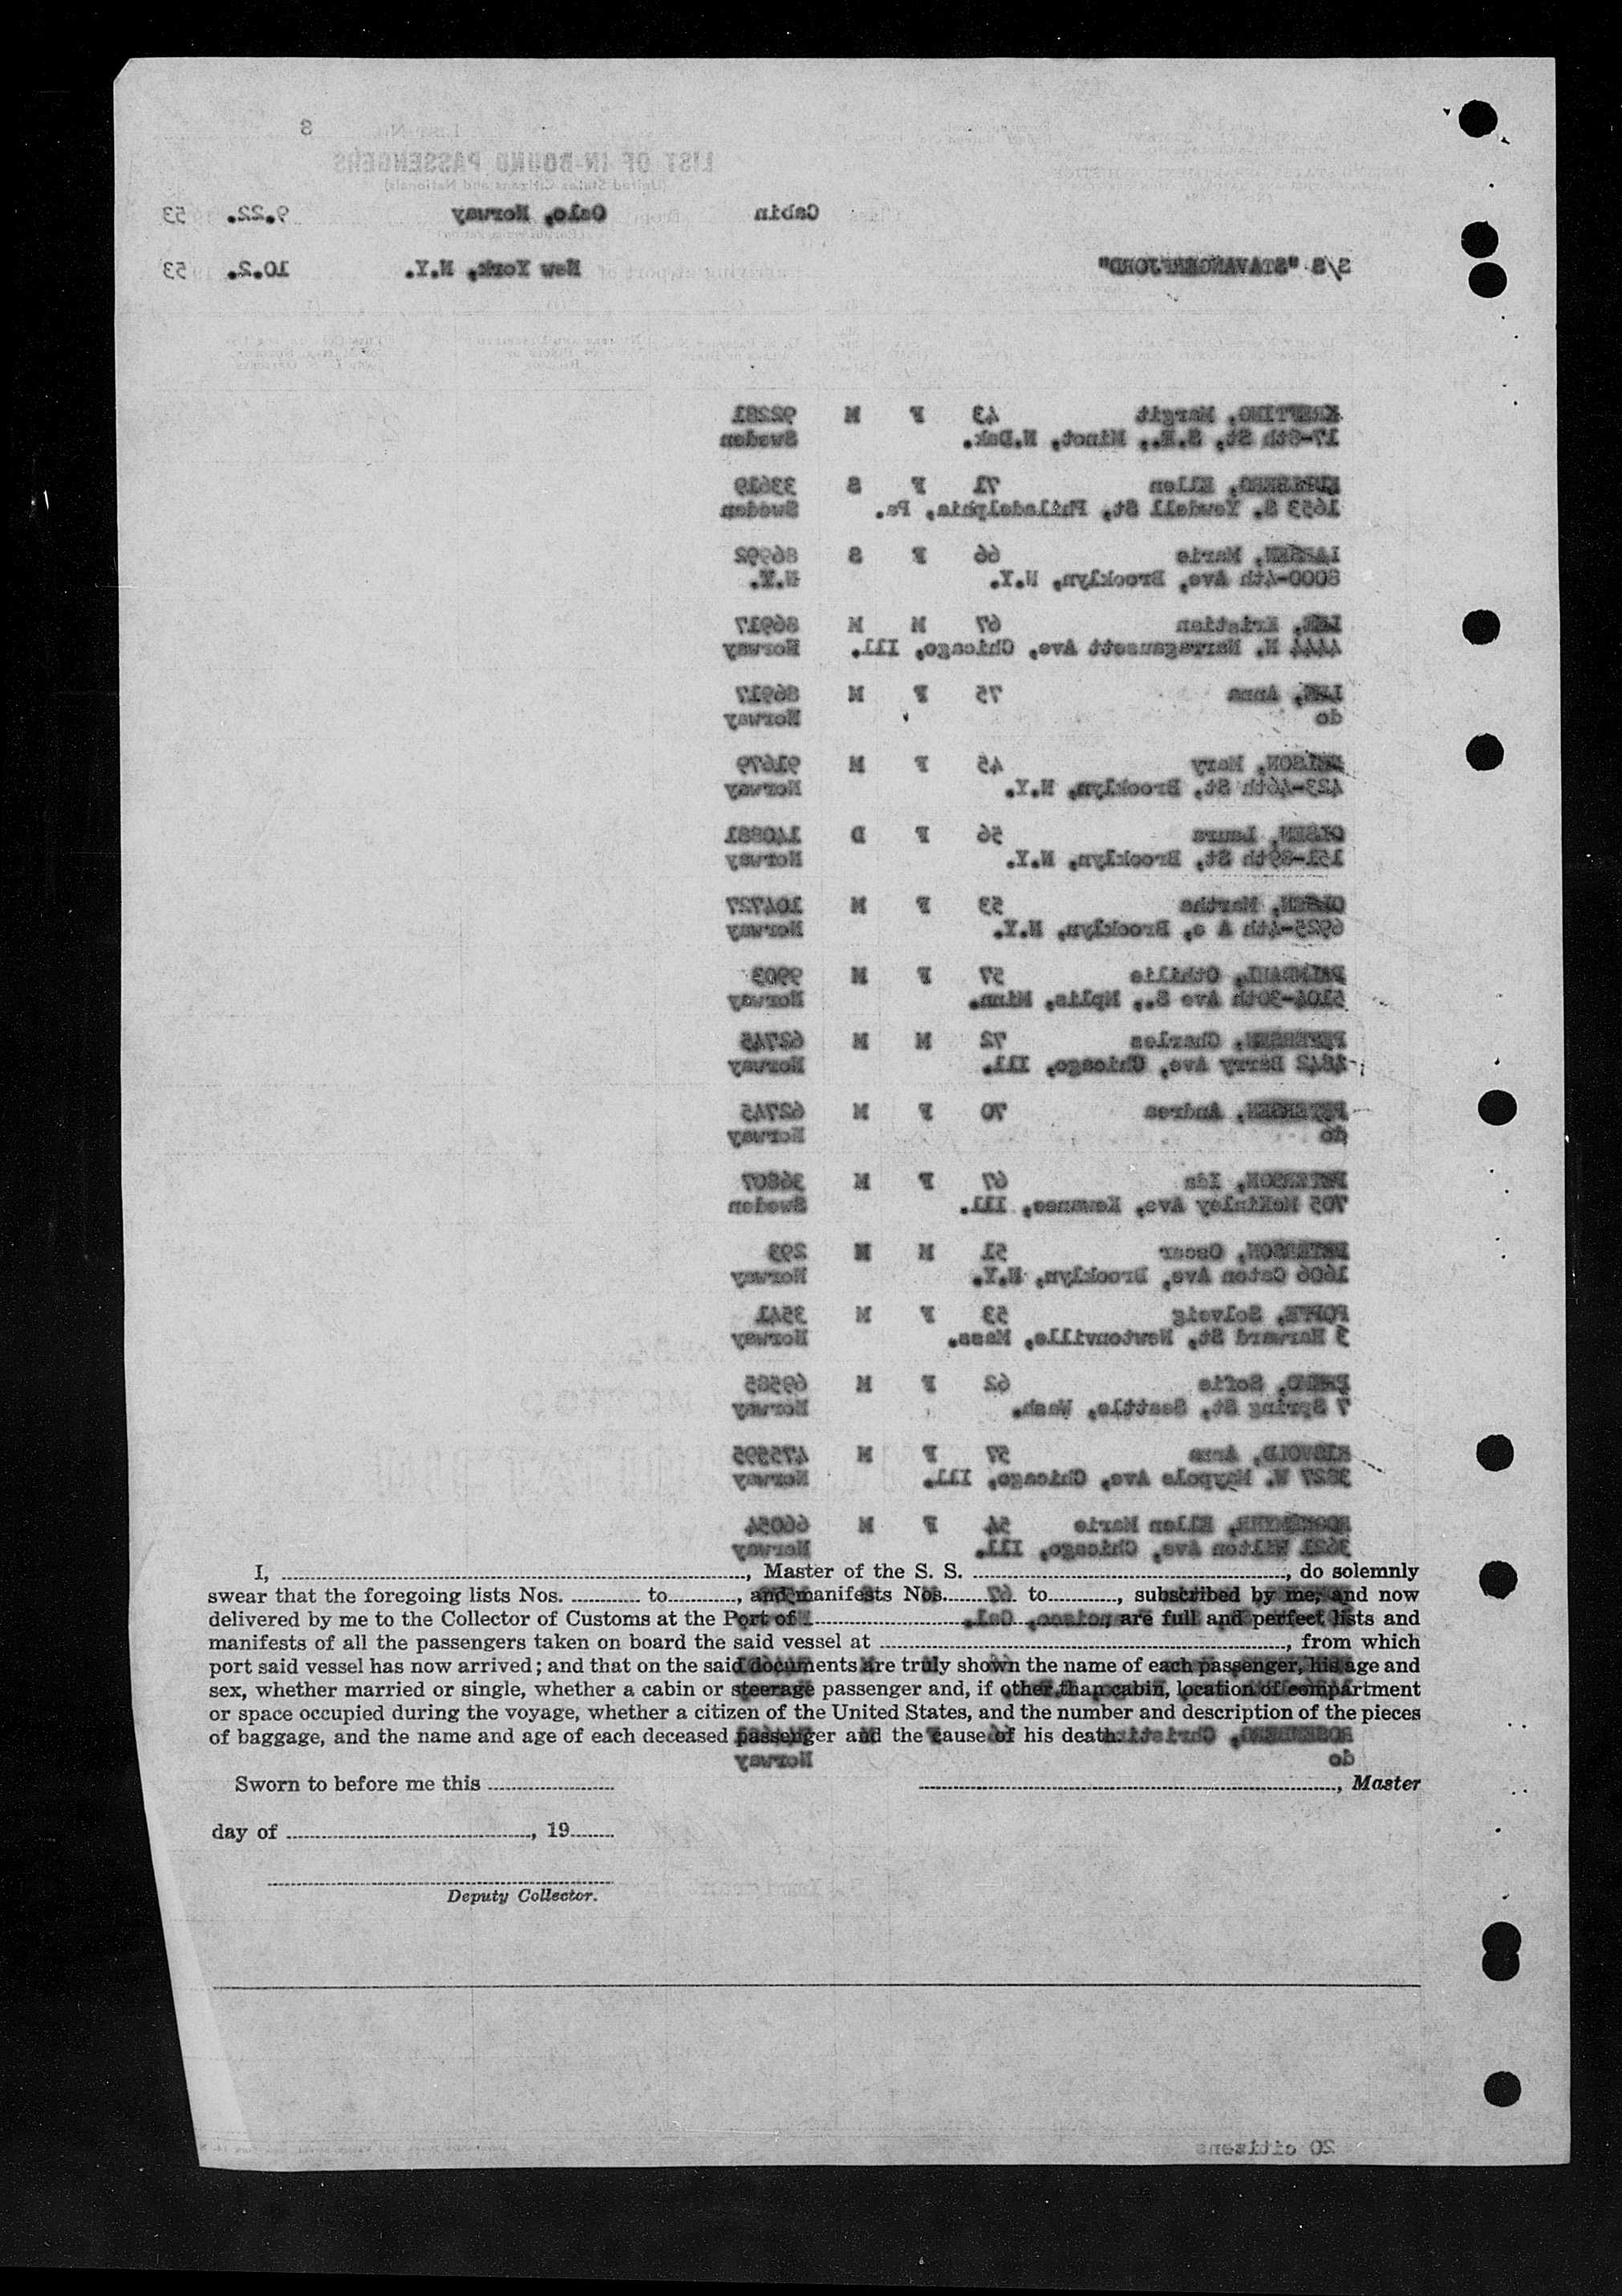 3
LIST OF IN-BOUND PASSENGERS
(United States Citizens and Nationals)
Cabin Oslo, Norway 9.22. 53
S/S "STAVANGERFJORD" New York, N.Y. 10.2. 53
KREFTING, Margit 43 F M 92281
17-8th St, S.E., Minot, N.Dak. Sweden
Ellen 71 F S 33619
1653 S. Yewdell St, Philadelphia, Pa. Sweden
LARSEN, Marie 66 F S 86992
8000-4th Ave, Brooklyn, N.Y. N.Y.
LEE, Kristian 67 M M 86917
4444 N. Narragansett Ave, Chicago, Ill. Norway
LEE, Anna 75 F M 86917
do Norway
NELSON, Mary 45 F M 91679
423-46th St, Brooklyn, N.Y. Norway
OLSEN, Laura 56 F D 140881
151-89th St, Brooklyn, N.Y. Norway
OLSEN, Marthe 53 F M 104727
6925-4th A e, Brooklyn, N.Y. Norway
PALMDAHL, Othilie 57 F M 9903
5104-30th Ave S., Mplis, Minn. Norway
PETERSEN, Charles 72 M M 62745
4842 Barry Ave, Chicago, Ill. Norway
PETERSEN, Andrea 70 F M 62745
do Norway
PETERSON, Ida 67 F M 36807
705 McKinley Ave, Kewanee, Ill. Sweden
PETERSON, Oscar 51 M M 293
1606 Caton Ave, Brooklyn, N.Y. Norway
FORTE, Solveig 53 F M 3541
3 Harvard St, Newtonville, Mass. Norway
Sofie 62 F M 69585
7 Spring St, Seattle, Wash. Norway
RISVOLD, Anna 57 F M 475595
3827 W. Maypole Ave, Chicago, Ill. Norway
Ellen Marie 54 F M 66054
3621 Wilton Ave, Chicago, Ill. Norway
I, , Master of the S. S. , do solemnly
swear that the foregoing lists Nos. to , and manifests Nos. 67 to , subscribed by me, and now
delivered by me to the Collector of Customs at the Port of , are full and perfect lists and
manifests of all the passengers taken on board the said vessel at , from which
port said vessel has now arrived; and that on the said documents are truly shown the name of each passenger, his age and
sex, whether married or single, whether a cabin or steerage passenger and, if other than cabin, location of compartment
or space occupied during the voyage, whether a citizen of the United States, and the number and description of the pieces
of baggage, and the name and age of each deceased passenger and the cause of his death.
do Norway
Sworn to before me this , Master
day of , 19
Deputy Collector.
20 citizens